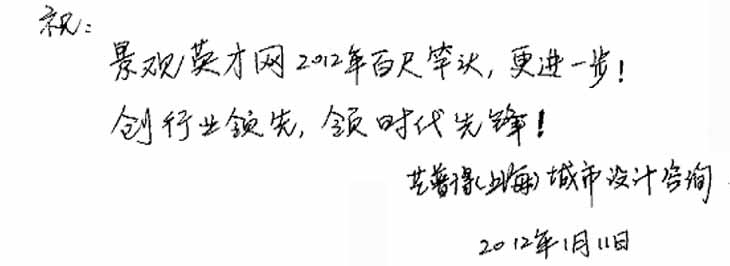 祝：
景观英才网2012年百尺竿头，更进一步！
创行业领先，领时代先锋！
艺普得(上海)城市设计咨询
2012年1月11日